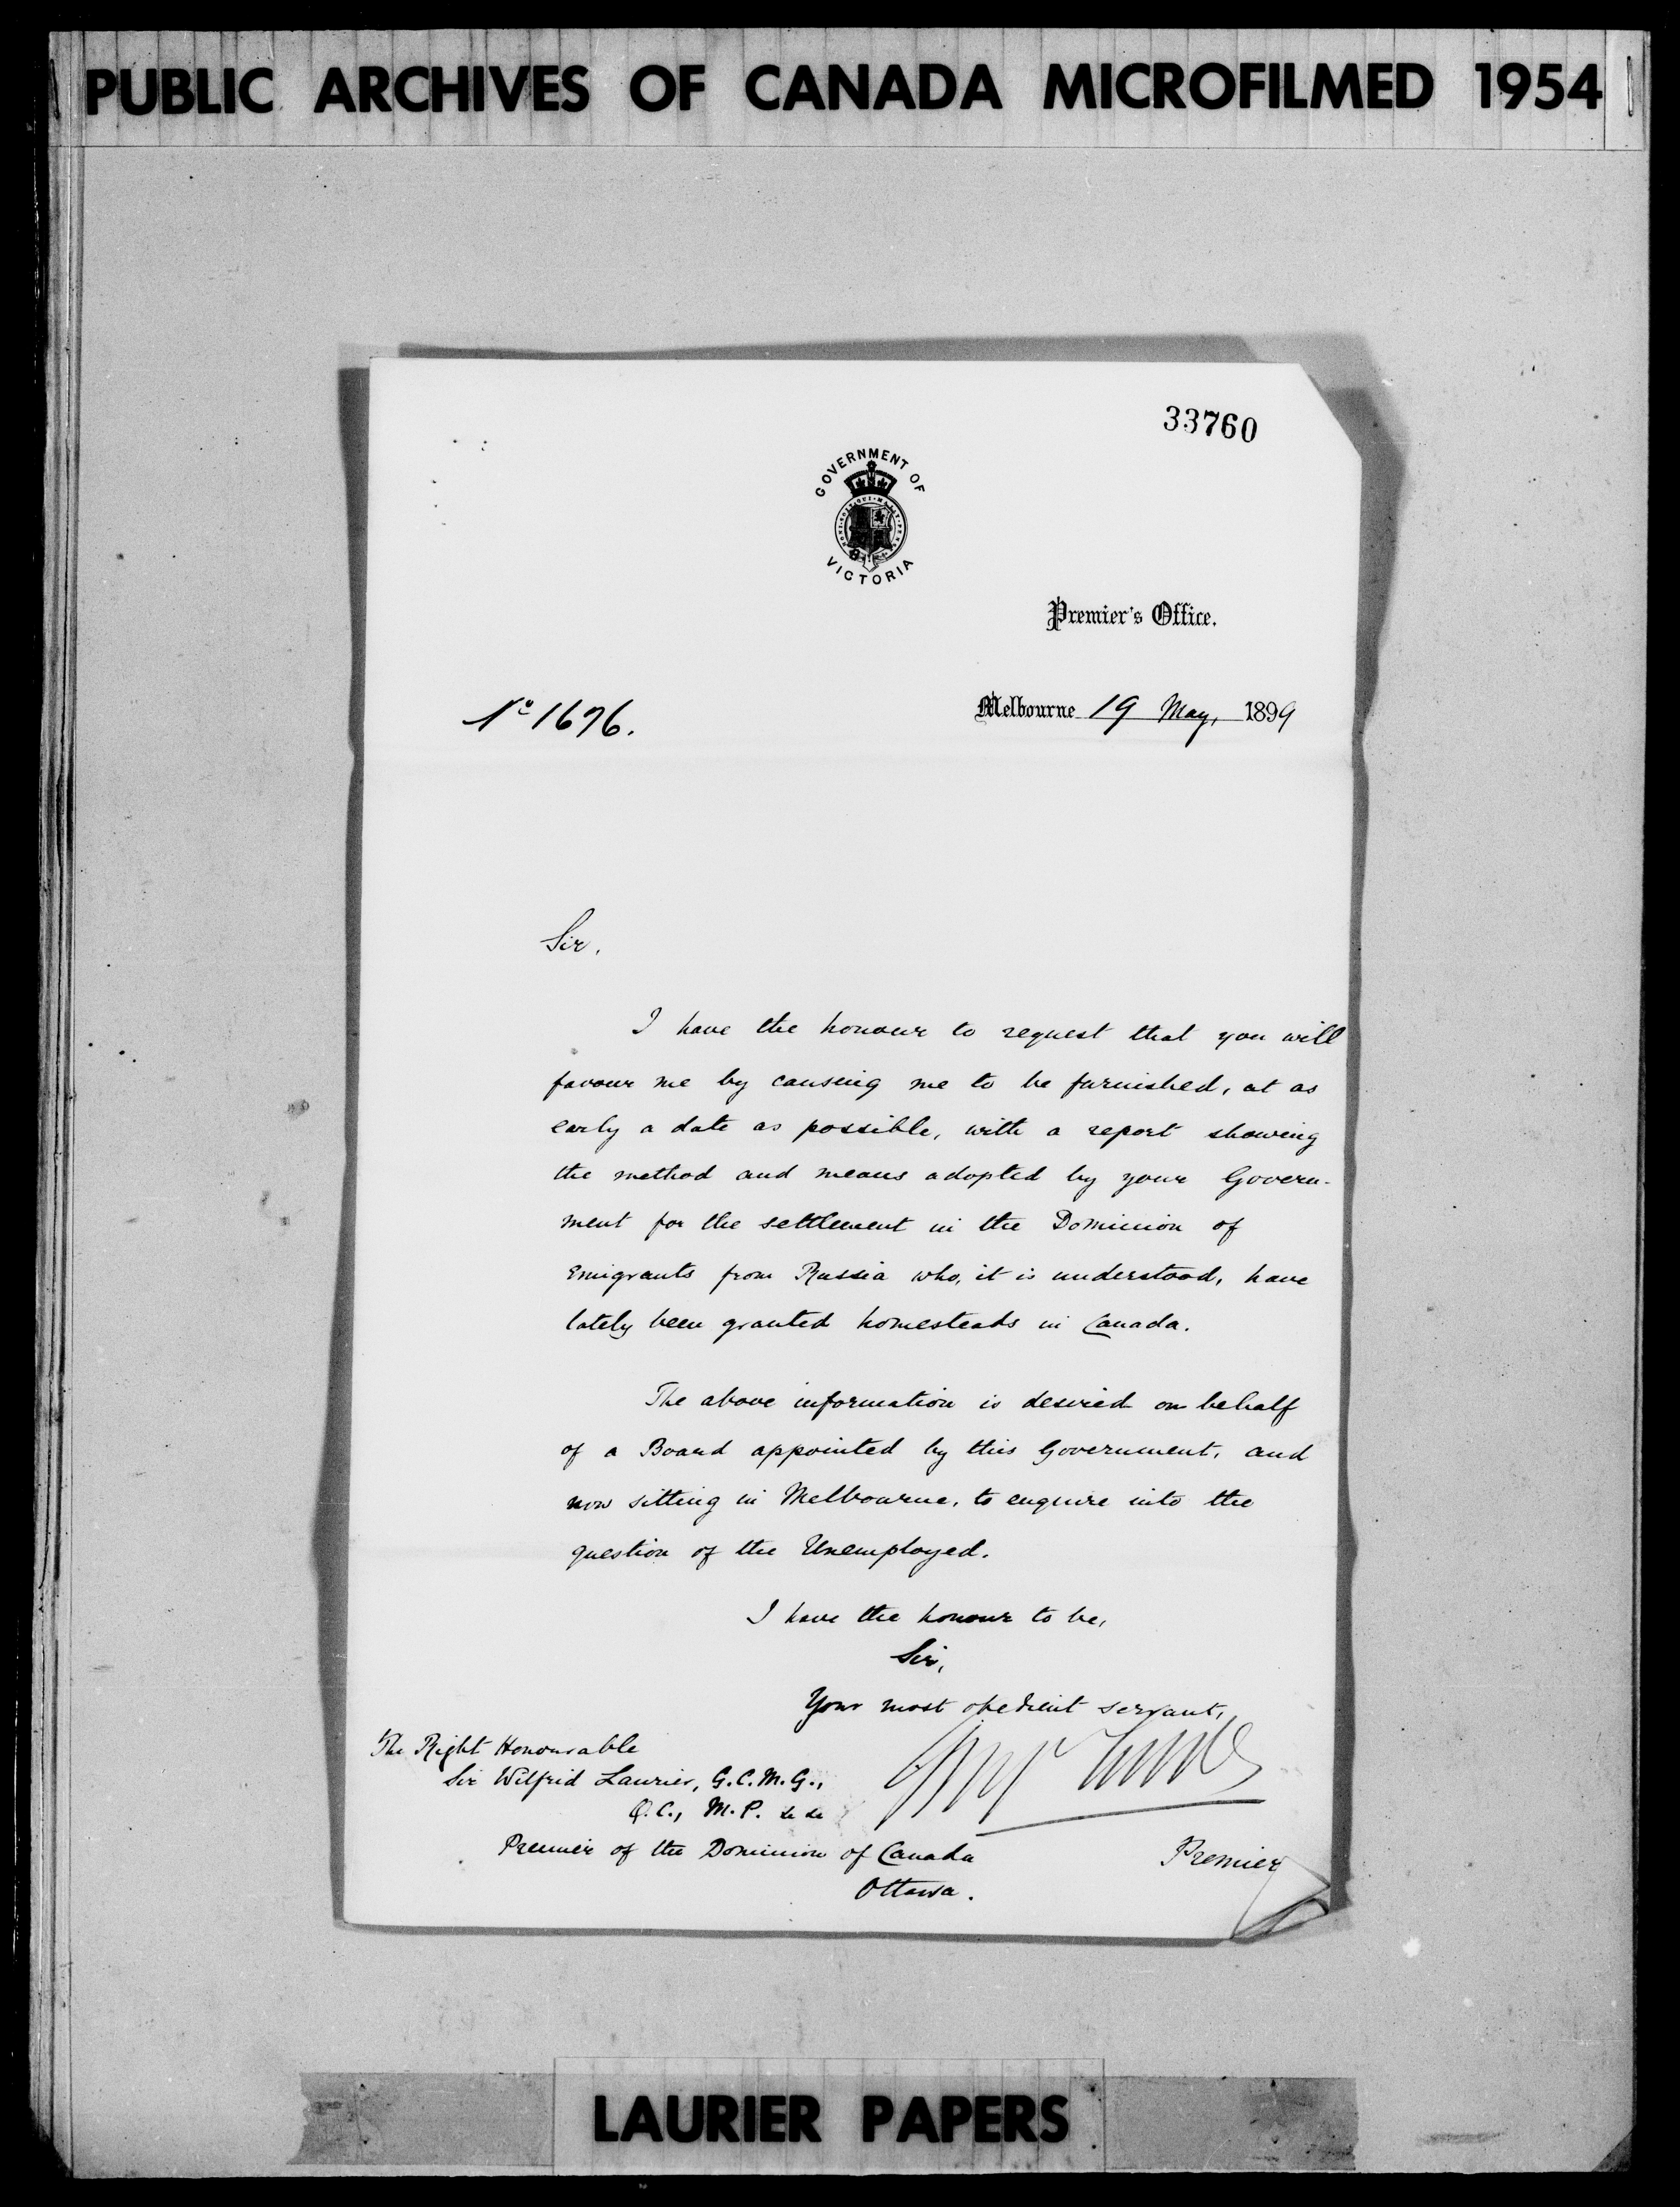 PUBLIC ARCHIVES OF CANADA MICROFILMED 1954
33760
GOVERNMENT OF
VICTORIA
Premier's Office.
Nº 1676.
Melbourne 19 May, 1899
Sir,
I have the honour to request that you will
favour me by causing me to be furnished, at as
early a date as possible, with a report showing
the method and means adopted by your Govern-
ment for the settlement in the Dominion of
Emigrants from Russia who, it is understood, have
lately been granted homesteads in Canada.
The above information is desired on behalf
of a Board appointed by this Government, and
now sitting in Melbourne, to enquire into the
question of the Unemployed.
I have the honour to be,
Sir,
Your most obedient servant,
The Right Honourable
Sir Wilfrid Laurier, G.C.M.G.,
Q.C., M.P. &c &c
Premier of the Dominion of Canada
Ottawa.
Premier
LAURIER PAPERS